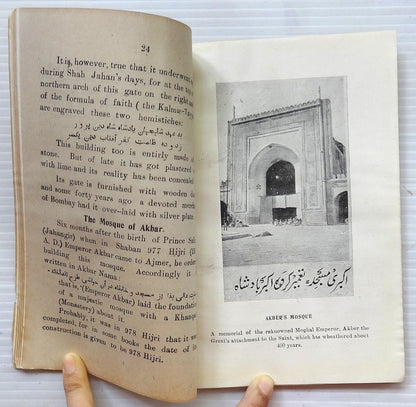 24
It is, however, true that it underwent
during Shah Jahan's days, for at the top
northern arch of this gate on the right and
of the formula of faith (the Kalma-
engraved these two hemistiches:
شاہجہاں بادشاہ دین پرور
ظلمت کفر آفتاب دین یکسر
This building too is entirely made of
stone. But of late it has got plastered
with lime and its reality has been concealed
Its gate is furnished with wooden
and some forty years ago a devoted
of Bombay had it over-laid with silver plate
The Mosque of Akbar.
Six months after the birth of Prince
(Jahangir) when in Shaban 977 Hijri
A. D.) Emperor Akbar came to Ajmer, he
building this mosque. Accordingly it
written in Akbar Nama:
that is, '(Emperor Akbar) laid the foundation
of a majestic mosque with a Khanqa
(Monastery) about it.
Probably, it was in 978 Hijri that it
completed, for in some books the date of
construction is given to be 978 Hijri.
اکبری مسجد تعمیر کردہ اکبر بادشاہ
AKBER'S MOSQUE
A memorial of the reknowned Moghal Emperor, Akber the
Great's attachment to the Saint, which has wheathered about
400 years.